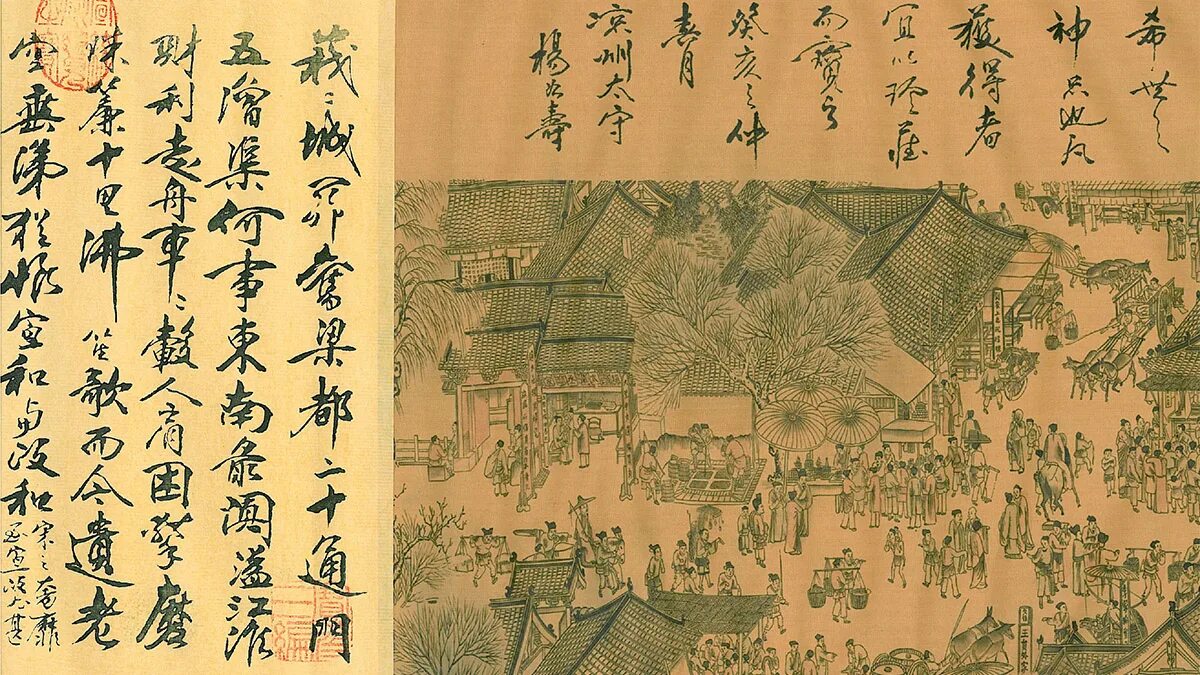 希世之
神品也凡
獲得者
宜以珍藏
而寶之
癸亥之仲
春月
涼州太守
楊壽
峩〻城闕舊梁都二十通門
五漕渠何事東南最闐溢江淮
財利走舟車〻轂人肩困擊磨
珠簾十里沸笙歌而今遺老
空垂涕猶恨宣和与政和
宋之奢靡
至宣政尤甚